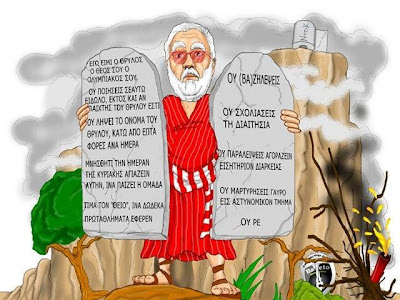 ΕΓΩ ΕΙΜΙ Ο ΘΡΥΛΟΣ
Ο ΘΕΟΣ ΣΟΥ Ο
ΟΛΥΜΠΙΑΚΟΣ ΣΟΥ.
ΟΥ ΠΟΙΗΣΕΙΣ ΣΕΑΥΤΩ
ΕΙΔΩΛΟ, ΕΚΤΟΣ ΚΑΙ ΑΝ
ΠΑΙΧΤΗ ΤΟΥ ΘΡΥΛΟΥ ΕΣΤΙ
ΟΥ ΛΗΨΕΙ ΤΟ ΟΝΟΜΑ ΤΟΥ
ΘΡΥΛΟΥ, ΚΑΤΩ ΑΠΟ ΕΠΤΑ
ΦΟΡΕΣ ΑΝΑ ΗΜΕΡΑ
ΜΝΗΣΘΗΤΙ ΤΗΝ ΗΜΕΡΑΝ
ΤΗΣ ΚΥΡΙΑΚΗΣ ΑΓΙΑΖΕΙΝ
ΑΥΤΗΝ, ΙΝΑ ΠΑΙΖΕΙ Η ΟΜΑΔΑ
ΤΙΜΑ ΤΟΝ "ΘΕΙΟ", ΙΝΑ ΔΩΔΕΚΑ
ΠΡΩΤΑΘΛΗΜΑΤΑ ΕΦΕΡΕΝ
ΟΥ (ΒΑ)ΖΗΛΕΨΕΙΣ
ΟΥ ΣΧΟΛΙΑΣΕΙΣ
ΤΗ ΔΙΑΙΤΗΣΙΑ
ΟΥ ΠΑΡΑΛΕΙΨΕΙΣ ΑΓΟΡΑΖΕΙΝ
ΕΙΣΗΤΗΡΙΟΝ ΔΙΑΡΚΕΙΑΣ
ΟΥ ΜΑΡΤΥΡΗΣΕΙΣ ΓΑΥΡΟ
ΕΙΣ ΑΣΤΥΝΟΜΙΚΟΝ ΤΜΗΜΑ
ΟΥ ΡΕ